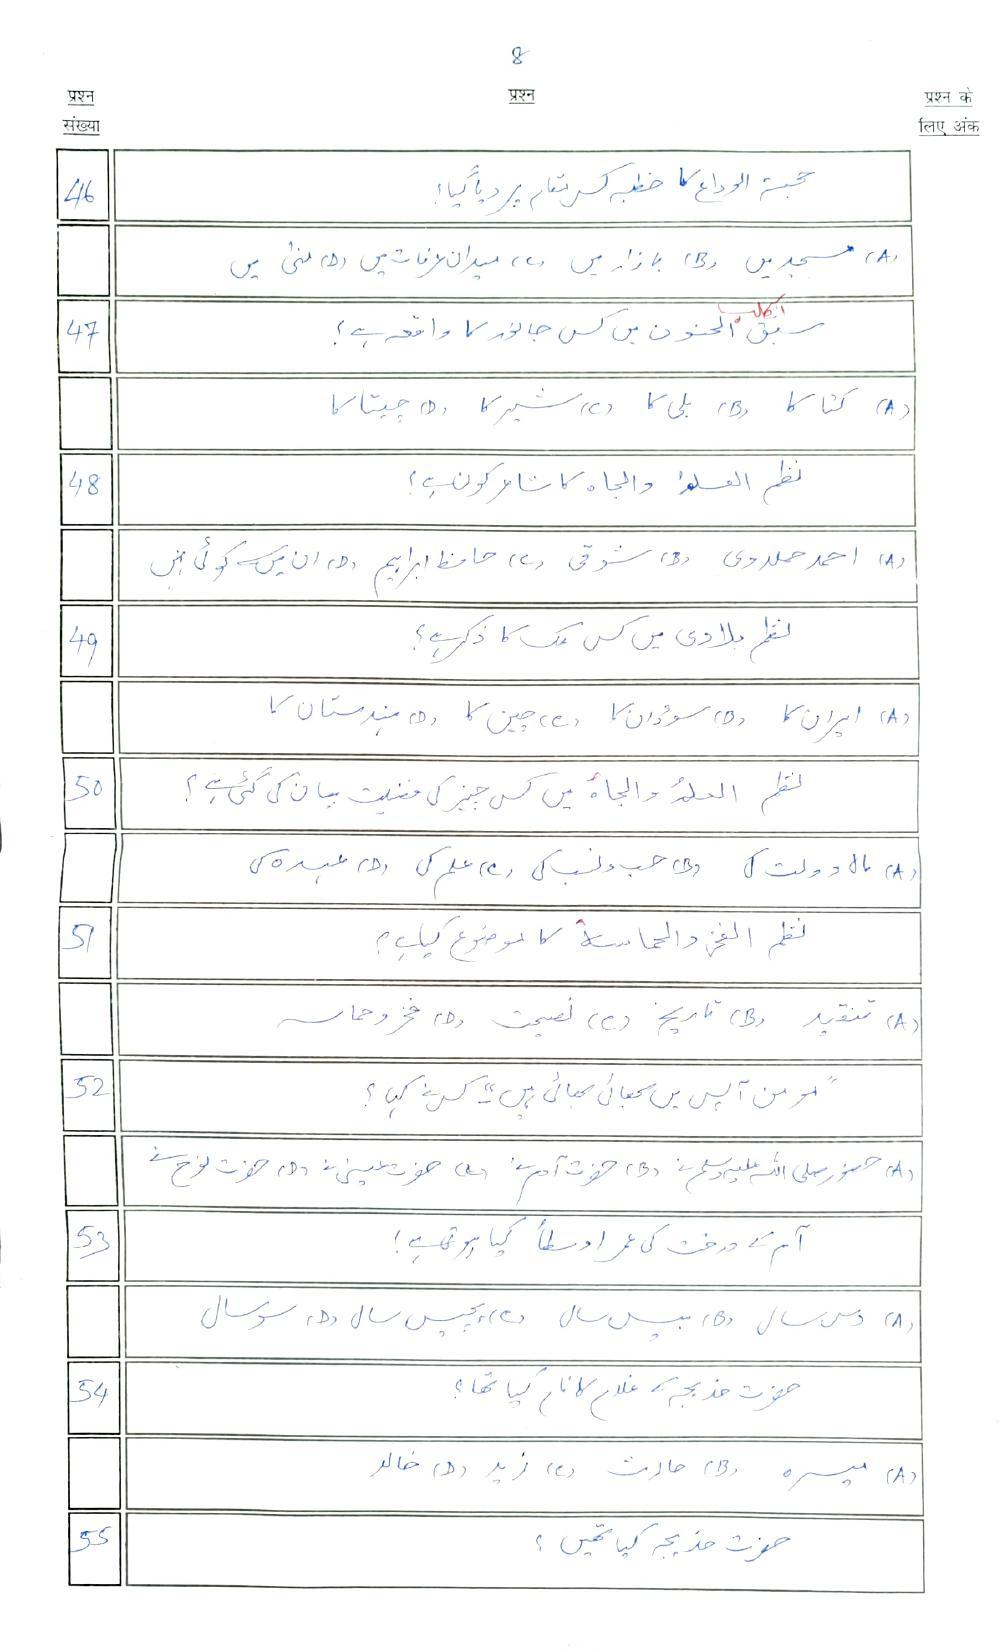 8
प्रश्न
संख्या
प्रश्न
प्रश्न के
लिए अंक
46 حجبۃ الوداع کا خطبہ کس مقام پر دیا گیا؟
(A) مسجد میں (B) بازار میں (C) میدان عرفات میں (D) منیٰ میں
47 سبق الکلب الحنون میں کس جانور کا واقعہ ہے؟
(A) کتا کا (B) بلی کا (C) شیر کا (D) چیتا کا
48 نظم العلم والجاہ کا شاعر کون ہے؟
(A) احمد حملاوی (B) شوقی (C) حافظ ابراہیم (D) ان میں سے کوئی نہیں
49 نظم بلادی میں کس ملک کا ذکر ہے؟
(A) ایران کا (B) سوڈان کا (C) چین کا (D) ہندستان کا
50 نظم العلمُ والجاہُ میں کس چیز کی فضیلت بیان کی گئی ہے؟
(A) مال و دولت کی (B) حسب و نسب کی (C) علم کی (D) عہدہ کی
51 نظم الفخر والحماسة کا موضوع کیا ہے؟
(A) تنقید (B) تاریخ (C) نصیحت (D) فخر و حماسہ
52 "مومن آپس میں بھائی بھائی ہیں" کس نے کہا؟
(A) حضور صلی اللہ علیہ وسلم نے (B) حضرت آدم نے (C) حضرت عیسیٰ نے (D) حضرت نوح نے
53 آم کے درخت کی عمر اوسطاً کیا ہوتی ہے؟
(A) دس سال (B) بیس سال (C) پچیس سال (D) سو سال
54 حضرت خدیجہ کے غلام کا نام کیا تھا؟
(A) میسرہ (B) حارث (C) زید (D) خالد
55 حضرت خدیجہ کیا تھیں؟